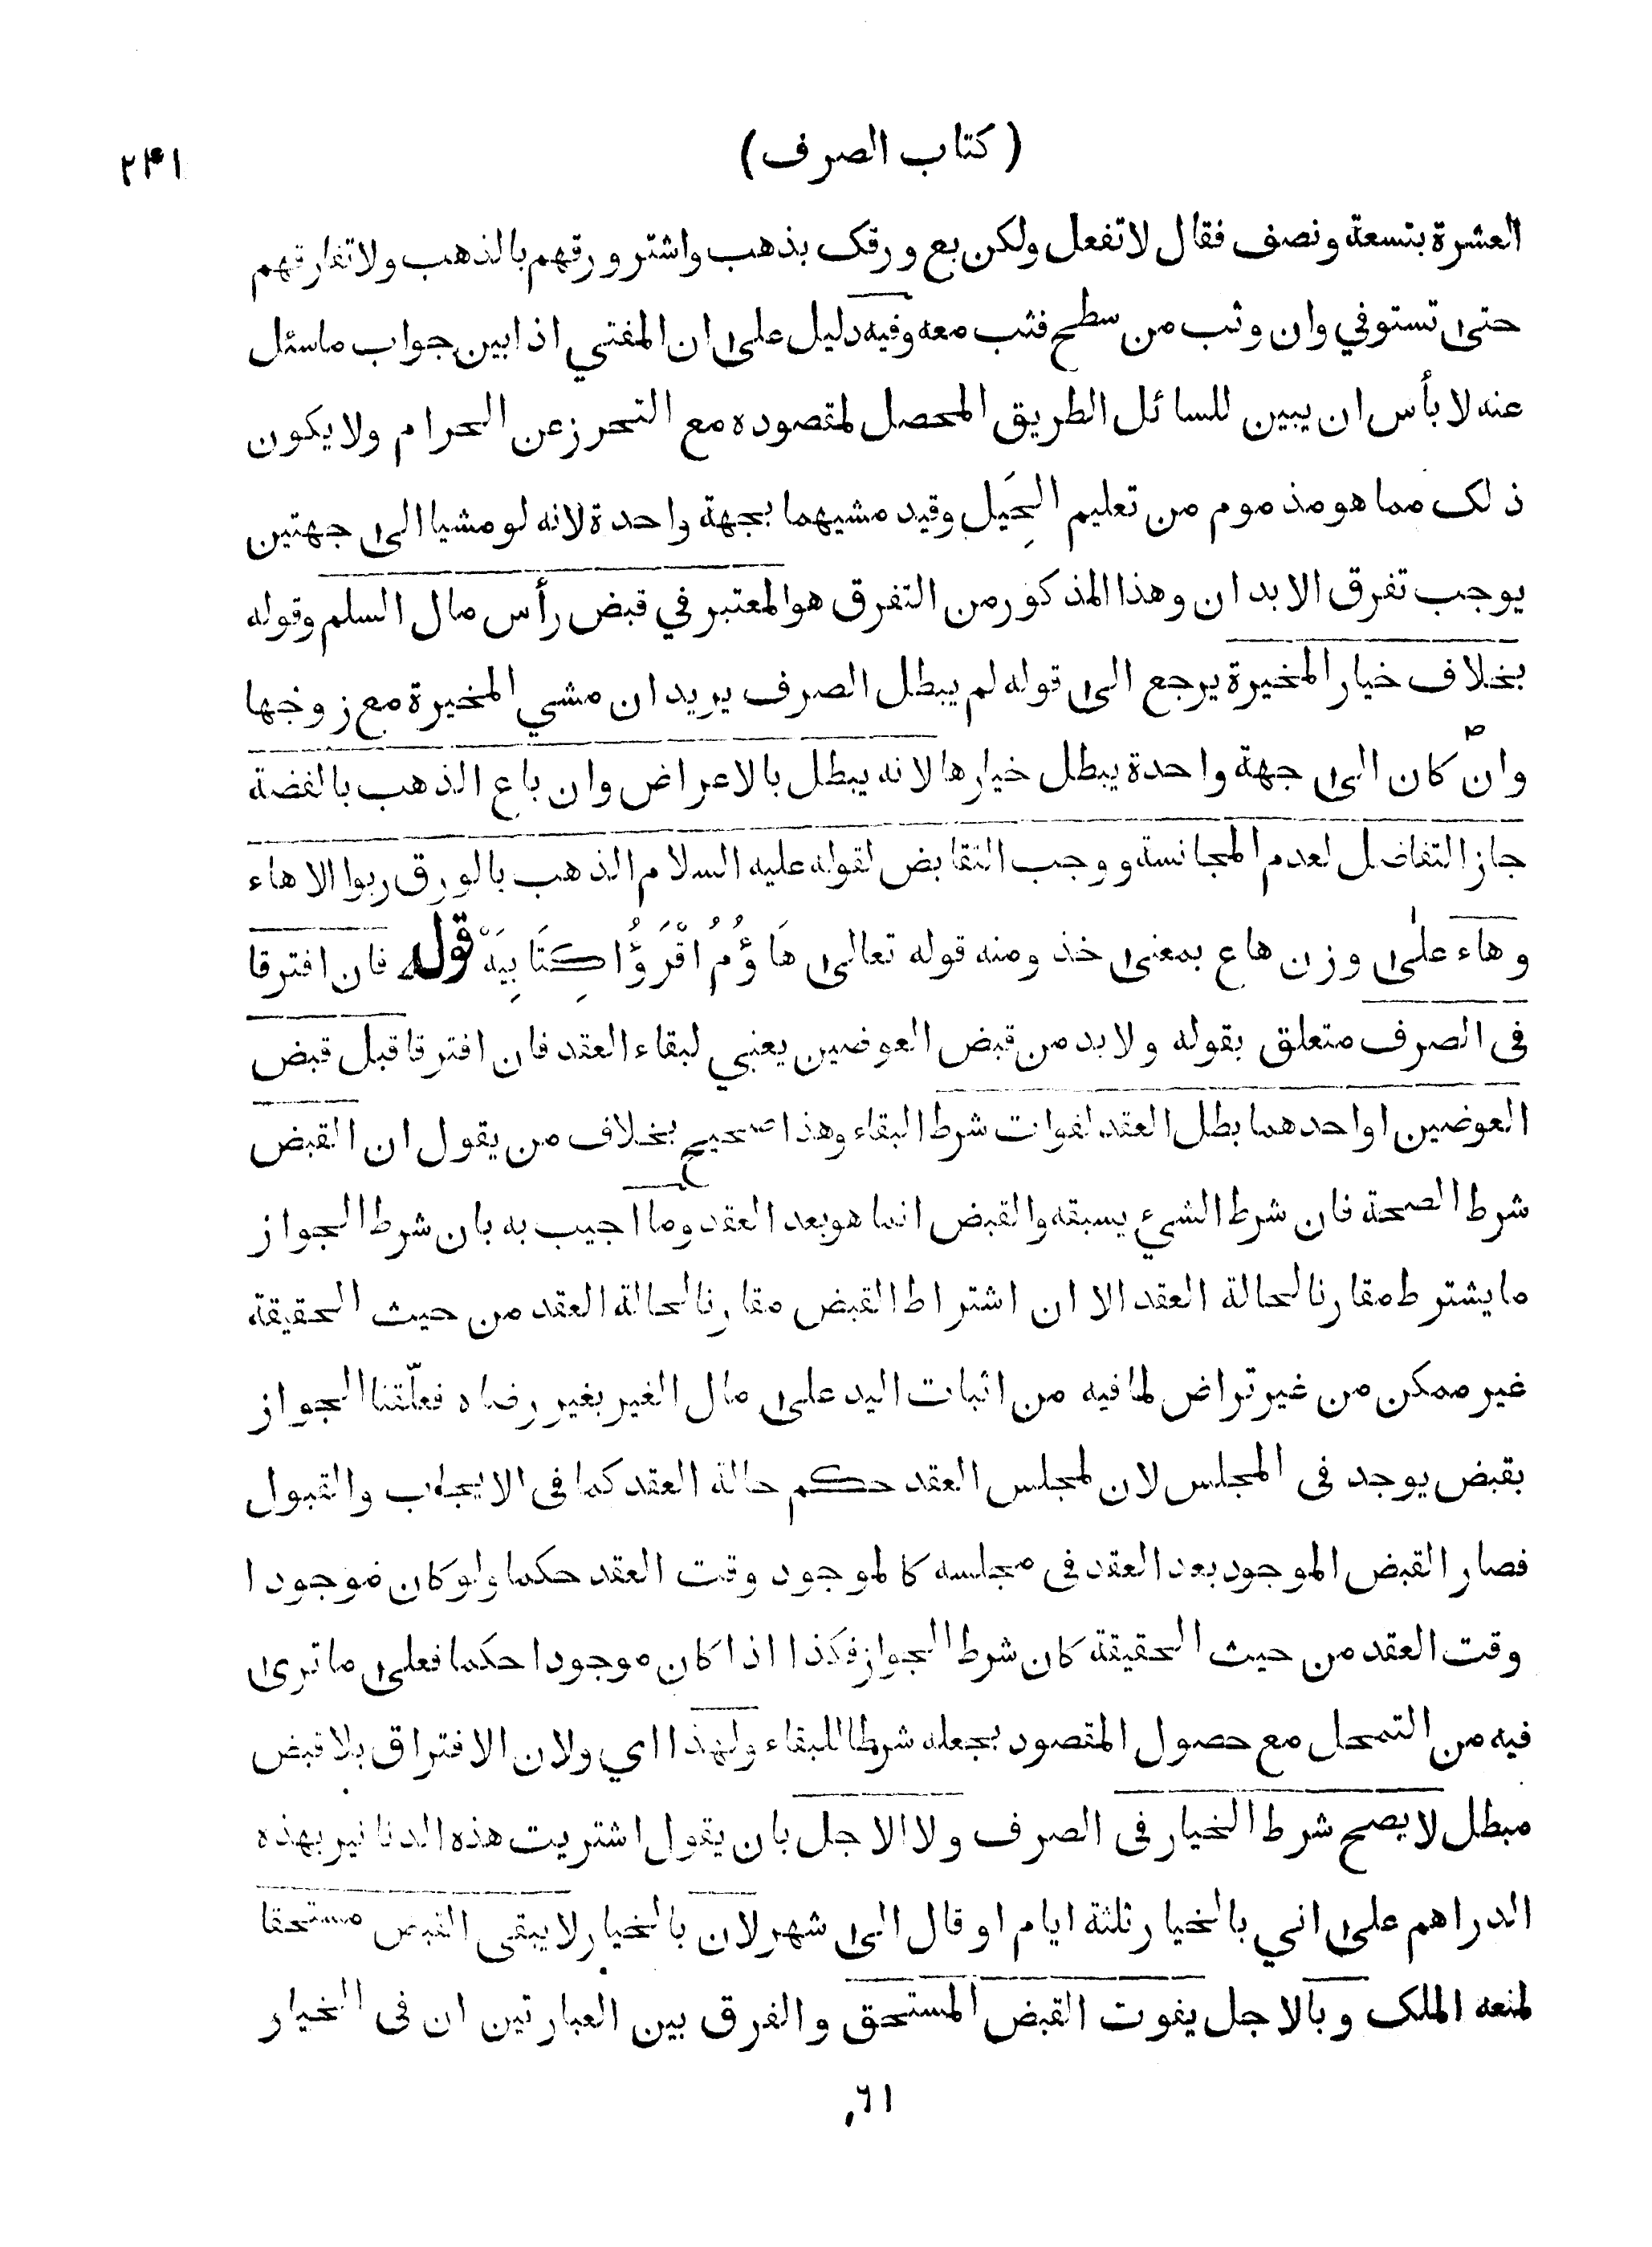 (كتاب الصرف)
٢٤١
العشرة بتسعة ونصف فقال لا تفعل ولكن بع ورقك بذهب واشتر ورقهم بالذهب ولا تفارقهم
حتى تستوفي وان وثب من سطح فثب معه وفيه دليل على ان المفتي اذا بين جواب ما سئل
عنه لا بأس ان يبين للسائل الطريق المحصل لمقصوده مع التحرز عن الحرام ولا يكون
ذلك مما هو مذموم من تعليم الحِيَل وقيد مشيهما بجهة واحدة لانه لو مشيا الى جهتين
يوجب تفرق الابدان وهذا المذكور من التفرق هو المعتبر في قبض رأس مال السلم وقوله
بخلاف خيار المخيرة يرجع الى قوله لم يبطل الصرف يريد ان مشي المخيرة مع زوجها
وان كان الى جهة واحدة يبطل خيارها لانه يبطل بالاعراض وان باع الذهب بالفضة
جاز التفاضل لعدم المجانسة ووجب التقابض لقوله عليه السلام الذهب بالورق ربوا الا هاء
وهاء على وزن هاع بمعنى خذ ومنه قوله تعالى هَاؤُمُ اقْرَؤُا كِتَابِيَهْ قوله فان افترقا
فى الصرف متعلق بقوله ولا بد من قبض العوضين يعني لبقاء العقد فان افترقا قبل قبض
العوضين او احدهما بطل العقد لفوات شرط البقاء وهذا صحيح بخلاف من يقول ان القبض
شرط الصحة فان شرط الشيء يسبقه والقبض انما هو بعد العقد وما اجيب به بان شرط الجواز
ما يشترط مقارنا لحالة العقد الا ان اشتراط القبض مقارنا لحالة العقد من حيث الحقيقة
غير ممكن من غير تراض لما فيه من اثبات اليد على مال الغير بغير رضاه فعلّقنا الجواز
بقبض يوجد فى المجلس لان لمجلس العقد حكم حالة العقد كما فى الايجاب والقبول
فصار القبض الموجود بعد العقد فى مجلسه كالموجود وقت العقد حكما ولو كان موجودا
وقت العقد من حيث الحقيقة كان شرط الجواز فكذا اذا كان موجودا حكما فعلى ما ترى
فيه من التمحل مع حصول المقصود بجعله شرطا للبقاء ولهذا اي ولان الافتراق بلا قبض
مبطل لا يصح شرط الخيار فى الصرف ولا الاجل بان يقول اشتريت هذه الدنانير بهذه
الدراهم على اني بالخيار ثلثة ايام او قال الى شهر لان بالخيار لا يبقى القبض مستحقا
لمنعه الملك وبالاجل يفوت القبض المستحق والفرق بين العبارتين ان فى الخيار
٦١